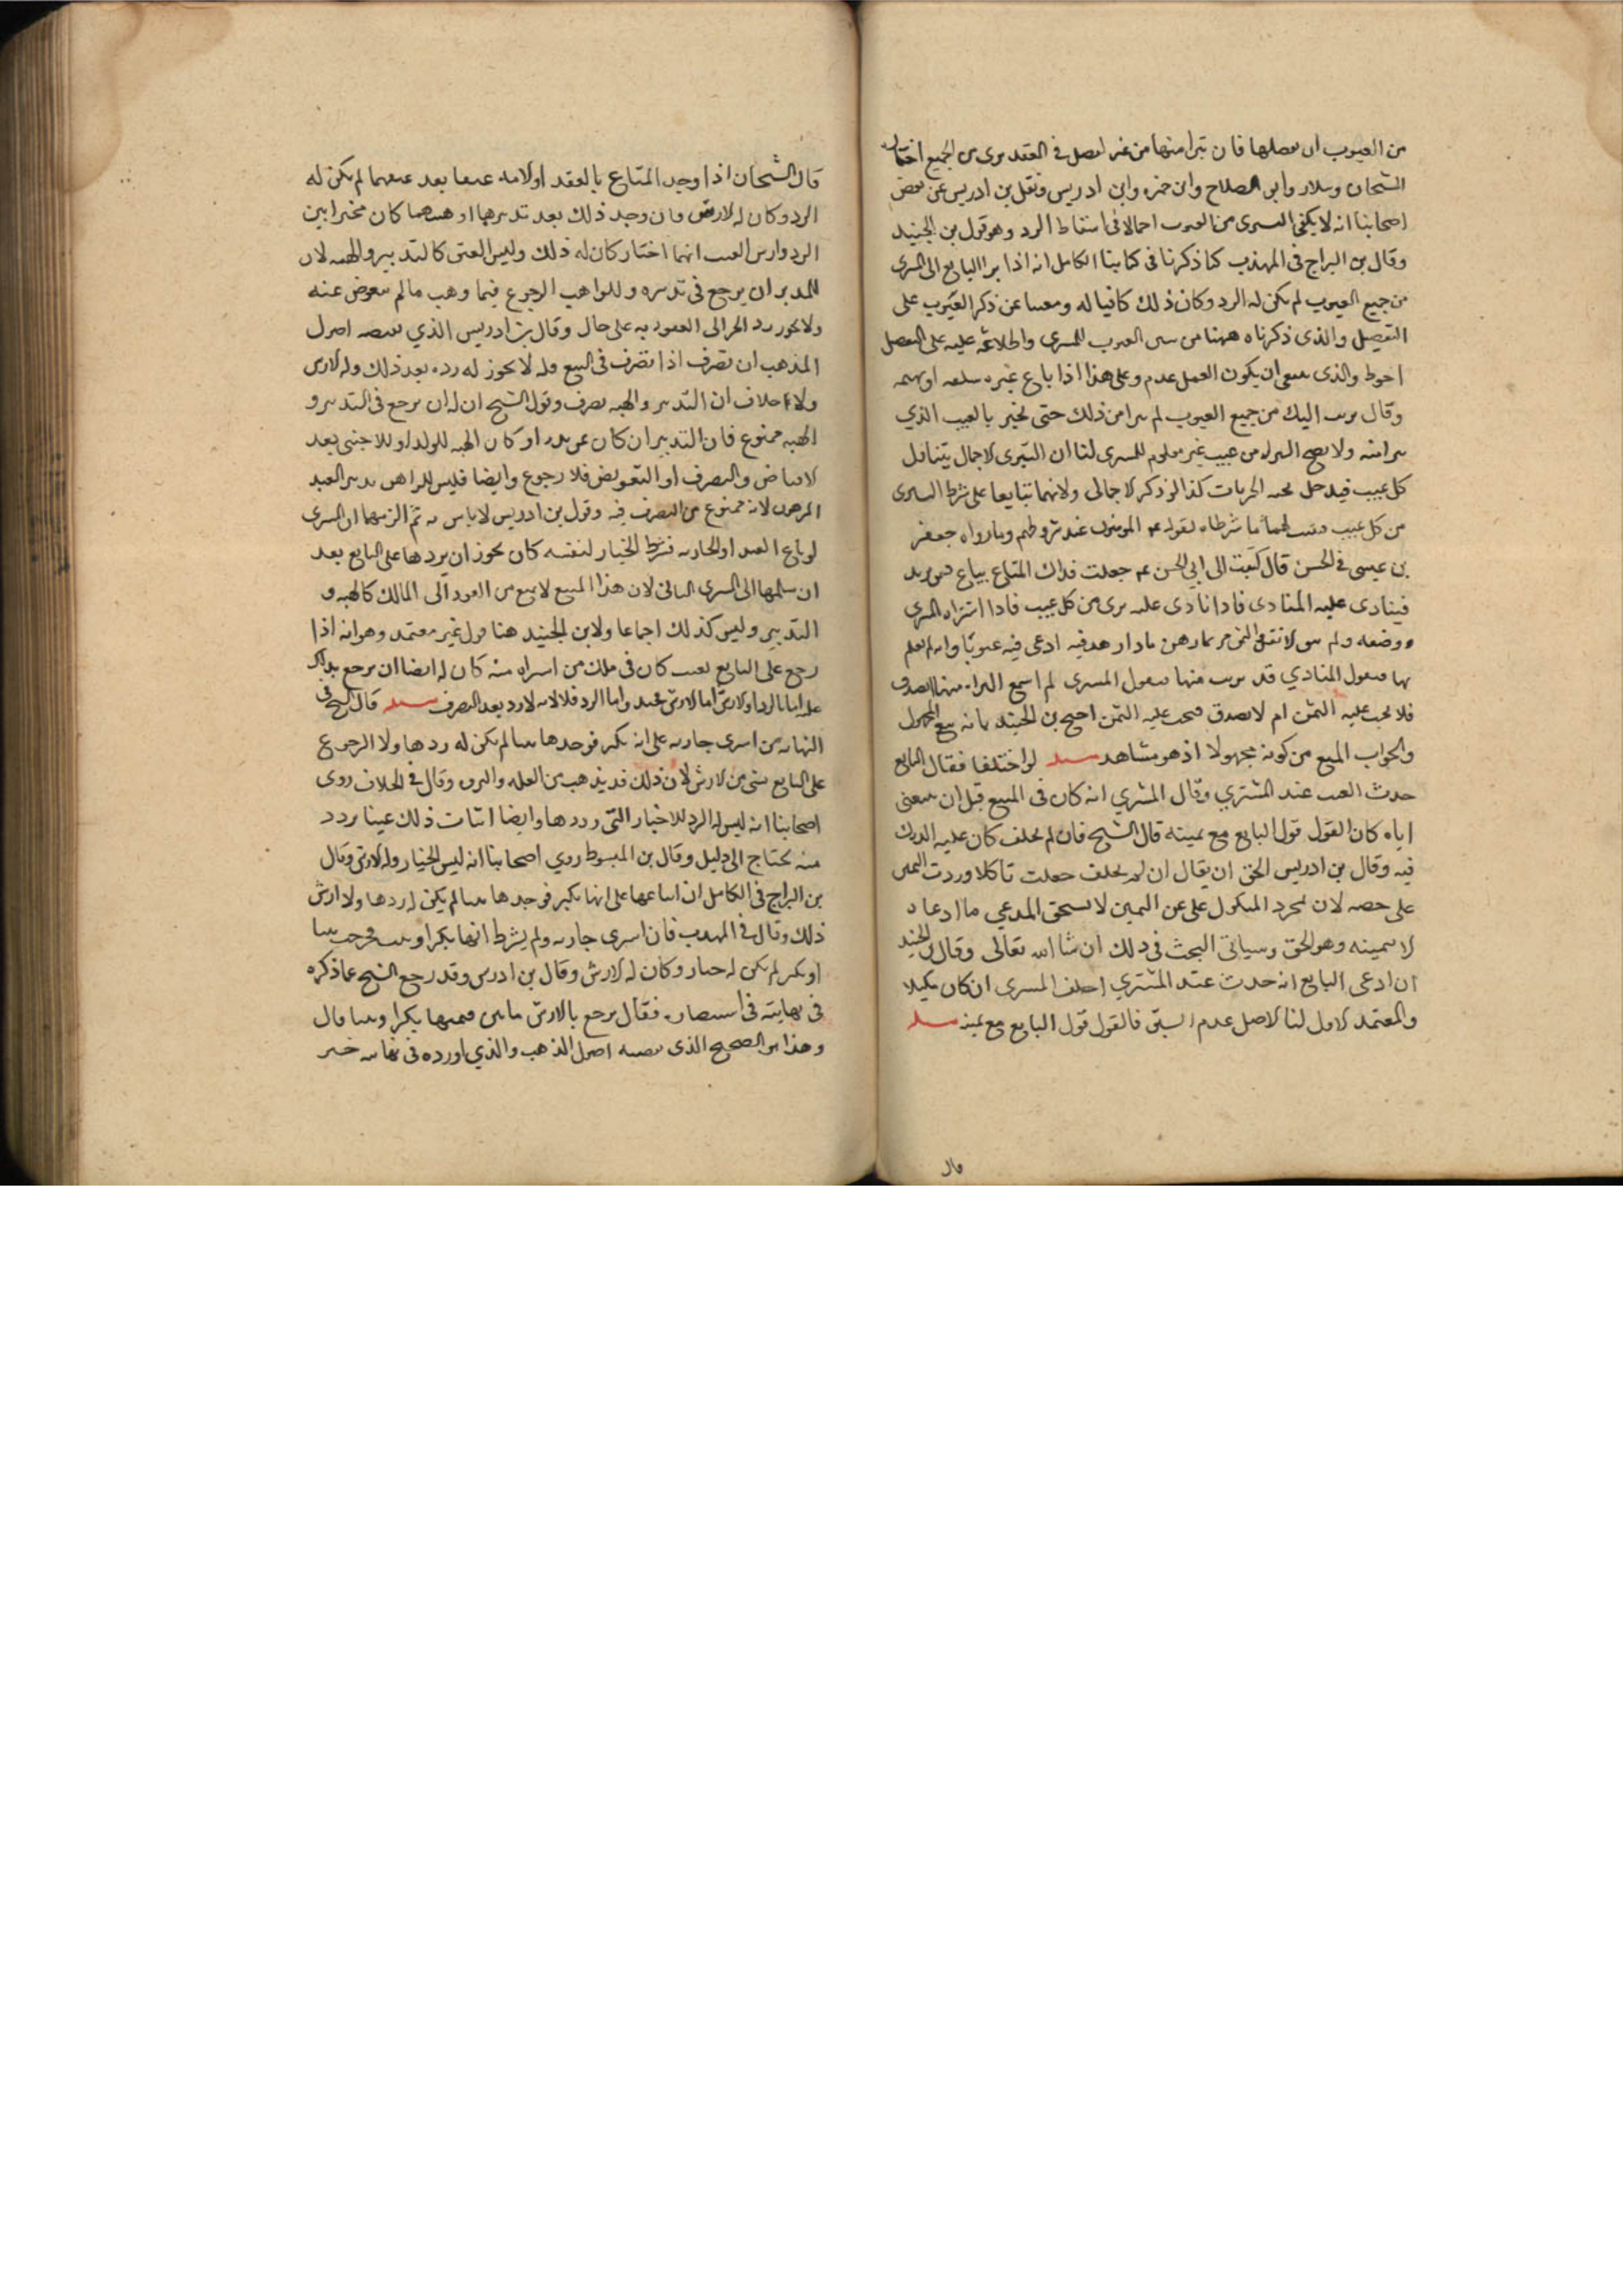 من العيوب ان يفصلها فان تبرا منها من غير تفصيل في العقد برى من الجميع اختاره
الشيخان وسلار وابو الصلاح وابن حمزه وابن ادريس ونقل بن ادريس عن بعض
اصحابنا انه لا يكفى التبرى من العيوب اجمالا فى اسقاط الرد وهو قول بن الجنيد
وقال بن البراج فى المهذب كما ذكرنا فى كتابنا الكامل انه اذا برا البايع الى المشترى
من جميع العيوب لم يكن له الرد وكان ذلك كافيا له ومغنيا عن ذكر العيوب على
التفصيل والذى ذكرناه ههنا من تبيين العيوب للمشترى واطلاعه عليه على التفصيل
احوط والذى ينبغى ان يكون العمل عليه وعلى هذا اذا باع غيره سلعه او بهيمه
وقال برئت اليك من جميع العيوب لم يبرا من ذلك حتى يخبر بالعيب الذي
يبرا منه ولا يصح البراه من عيب غير معلوم للمشترى لنا ان التبرى الاجمالى يتناول
كل عيب فيدخل تحته الجزييات كذا لو ذكر الاجمالى ولانهما تبايعا على شرط التبرى
من كل عيب فيثبت لهما ما شرطاه لقوله عم المومنون عند شروطهم وما رواه جعفر
بن عيسى فى الحسن قال كتبت الى ابي الحسن عم جعلت فداك المتاع يباع فيمن يزيد
فينادى عليه المنادى فاذا نادى عليه برى من كل عيب فاذا اشتراه المشترى
ورضيه ولم يبق الا نقد الثمن فربما زهد فيه ادعى فيه عيوبا وانه لم يعلم
بها فيقول المنادي قد برئت منها فيقول المشترى لم اسمع البراه منها ايصدق
فلا يجب عليه الثمن ام لا يصدق فيجب عليه الثمن احتج بن الجنيد بانه بيع المجهول
والجواب المنع من كونه مجهولا اذ هو مشاهد مسئله لو اختلفا فقال البايع
حدث العيب عند المشتري وقال المشتري انه كان فى المبيع قبل ان يبيعنى
اياه كان القول قول البايع مع يمينه قال الشيخ فان لم يحلف كان عليه الدرك
فيه وقال بن ادريس الحق ان يقال ان لم يحلف جعلت ناكلا وردت اليمين
على خصمه لان بمجرد النكول على عن اليمين لا يستحق المدعي ما ادعاه
الا بيمينه وهو الحق وسياتى البحث فى ذلك ان شا الله تعالى وقال بن الجنيد
ان ادعى البايع انه حدث عند المشتري احلف المشترى ان كان
والمعتمد الاول لنا الاصل عدم السبق فالقول قول البايع مع يمينه مسئله
قال
قال الشيخان اذا وجد المبتاع بالعبد او الامه عيبا بعد عتقهما لم يكن له
الرد وكان له الارش فان وجد ذلك بعد تدبيرها او هبتهما كان مخيرا بين
الرد وارش العيب ايهما اختار كان له ذلك وليس العتق كالتدبير والهبه لان
للمدبر ان يرجع فى تدبيره وللواهب الرجوع فيما وهب ما لم يتعوض عنه
ولا يجوز رد الحر الى العبوديه على حال وقال بن ادريس الذي يقتضيه اصول
المذهب ان تصرف اذا تصرف فى المبيع فله لا يجوز له رده بعد ذلك وله الارش
ولا خلاف ان التدبير والهبه تصرف وقول الشيخ ان له ان يرجع فى التدبير و
الهبه ممنوع فان التدبير ان كان عن نذر او كان الهبه للولد او للاجنبى بعد
الاقباض والتصرف او التعويض فلا رجوع وايضا فليس للراهن تدبير العبد
المرهون لانه ممنوع من التصرف فيه وقول بن ادريس لا باس به ثم الزمهما ان المشترى
لو باع العبد او الجاريه فشرط الخيار لنفسه كان يجوز ان يردها على البايع بعد
ان سلمها الى المشترى الثانى لان هذا المبيع لا يمنع من العود الى المالك كالهبه و
التدبير وليس كذلك اجماعا ولابن الجنيد هنا قول غير معتمد وهو انه اذا
رجع على البايع بعيب كان فى ملك من اشتراه منه كان له ايضا ان يرجع بذلك
عليه اما بالرد او الارش اما الارش فجيد واما الرد فلا لانه لا رد بعد التصرف مسئله قال الشيخ فى
النهايه من اشترى جاريه على انه بكر فوجدها ثيبا لم يكن له ردها ولا الرجوع
على البايع بشى من الارش لان ذلك قد يذهب من العله والنزوه وقال فى الخلاف روى
اصحابنا انه ليس له الرد للاخبار التى وردها وايضا اثبات ذلك عيبا يرد
منه يحتاج الى دليل وقال بن المبسوط روي اصحابنا انه ليس الخيار وله الارش وقال
بن البراج فى الكامل ان ابتاعها على انها بكر فوجدها ثيبا لم يكن له ردها ولا ارش
ذلك وقال فى المهذب فان اشترى جاريه ولم يشرط انها بكر او ثيب فوجد ثيبا
او بكر لم يكن له خيار وكان له الارش وقال بن ادريس وقد رجع الشيخ عما ذكره
فى نهايته فى استبصاره فقال يرجع بالارش ما بين قيمتها بكرا وثيبا قال
وهذا هو الصحيح الذى يقتضيه اصول المذهب والذي اورده فى نهايته خبر